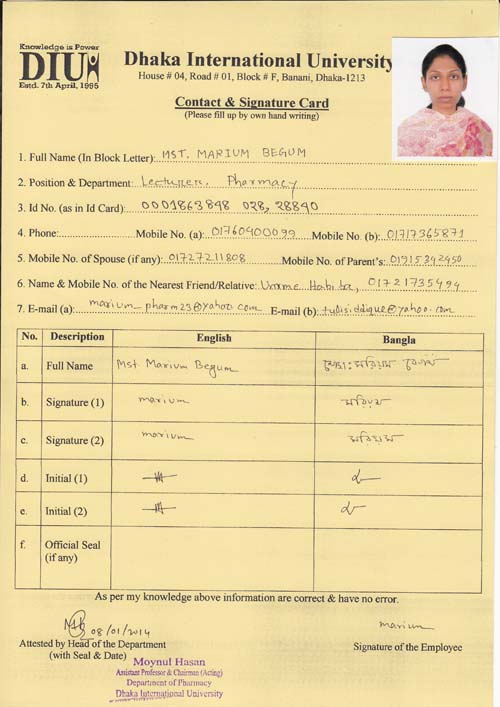 Knowledge is Power
DIU
Estd. 7th April, 1995
Dhaka International University
House # 04, Road # 01, Block # F, Banani, Dhaka-1213
Contact & Signature Card
(Please fill up by own hand writing)
1. Full Name (In Block Letter): MST. MARIUM BEGUM
2. Position & Department: Lecturer, Pharmacy
3. Id No. (as in Id Card): 0001863848 028, 28840
4. Phone: Mobile No. (a): 01760400099 Mobile No. (b): 01717365871
5. Mobile No. of Spouse (if any): 01727211808 Mobile No. of Parent's: 01915342450
6. Name & Mobile No. of the Nearest Friend/Relative: Umme Habiba, 01721735494
7. E-mail (a): marium_pharm23@yahoo.com E-mail (b): tulisiddique@yahoo.com
No. Description English Bangla
a. Full Name Mst. Marium Begum মোছা: মরিয়ম বেগম
b. Signature (1) marium মরিয়ম
c. Signature (2) marium মরিয়ম
d. Initial (1)
e. Initial (2)
f. Official Seal
(if any)
As per my knowledge above information are correct & have no error.
08/01/2014 marium
Attested by Head of the Department Signature of the Employee
(with Seal & Date)
Moynul Hasan
Assistant Professor & Chairman (Acting)
Department of Pharmacy
Dhaka International University